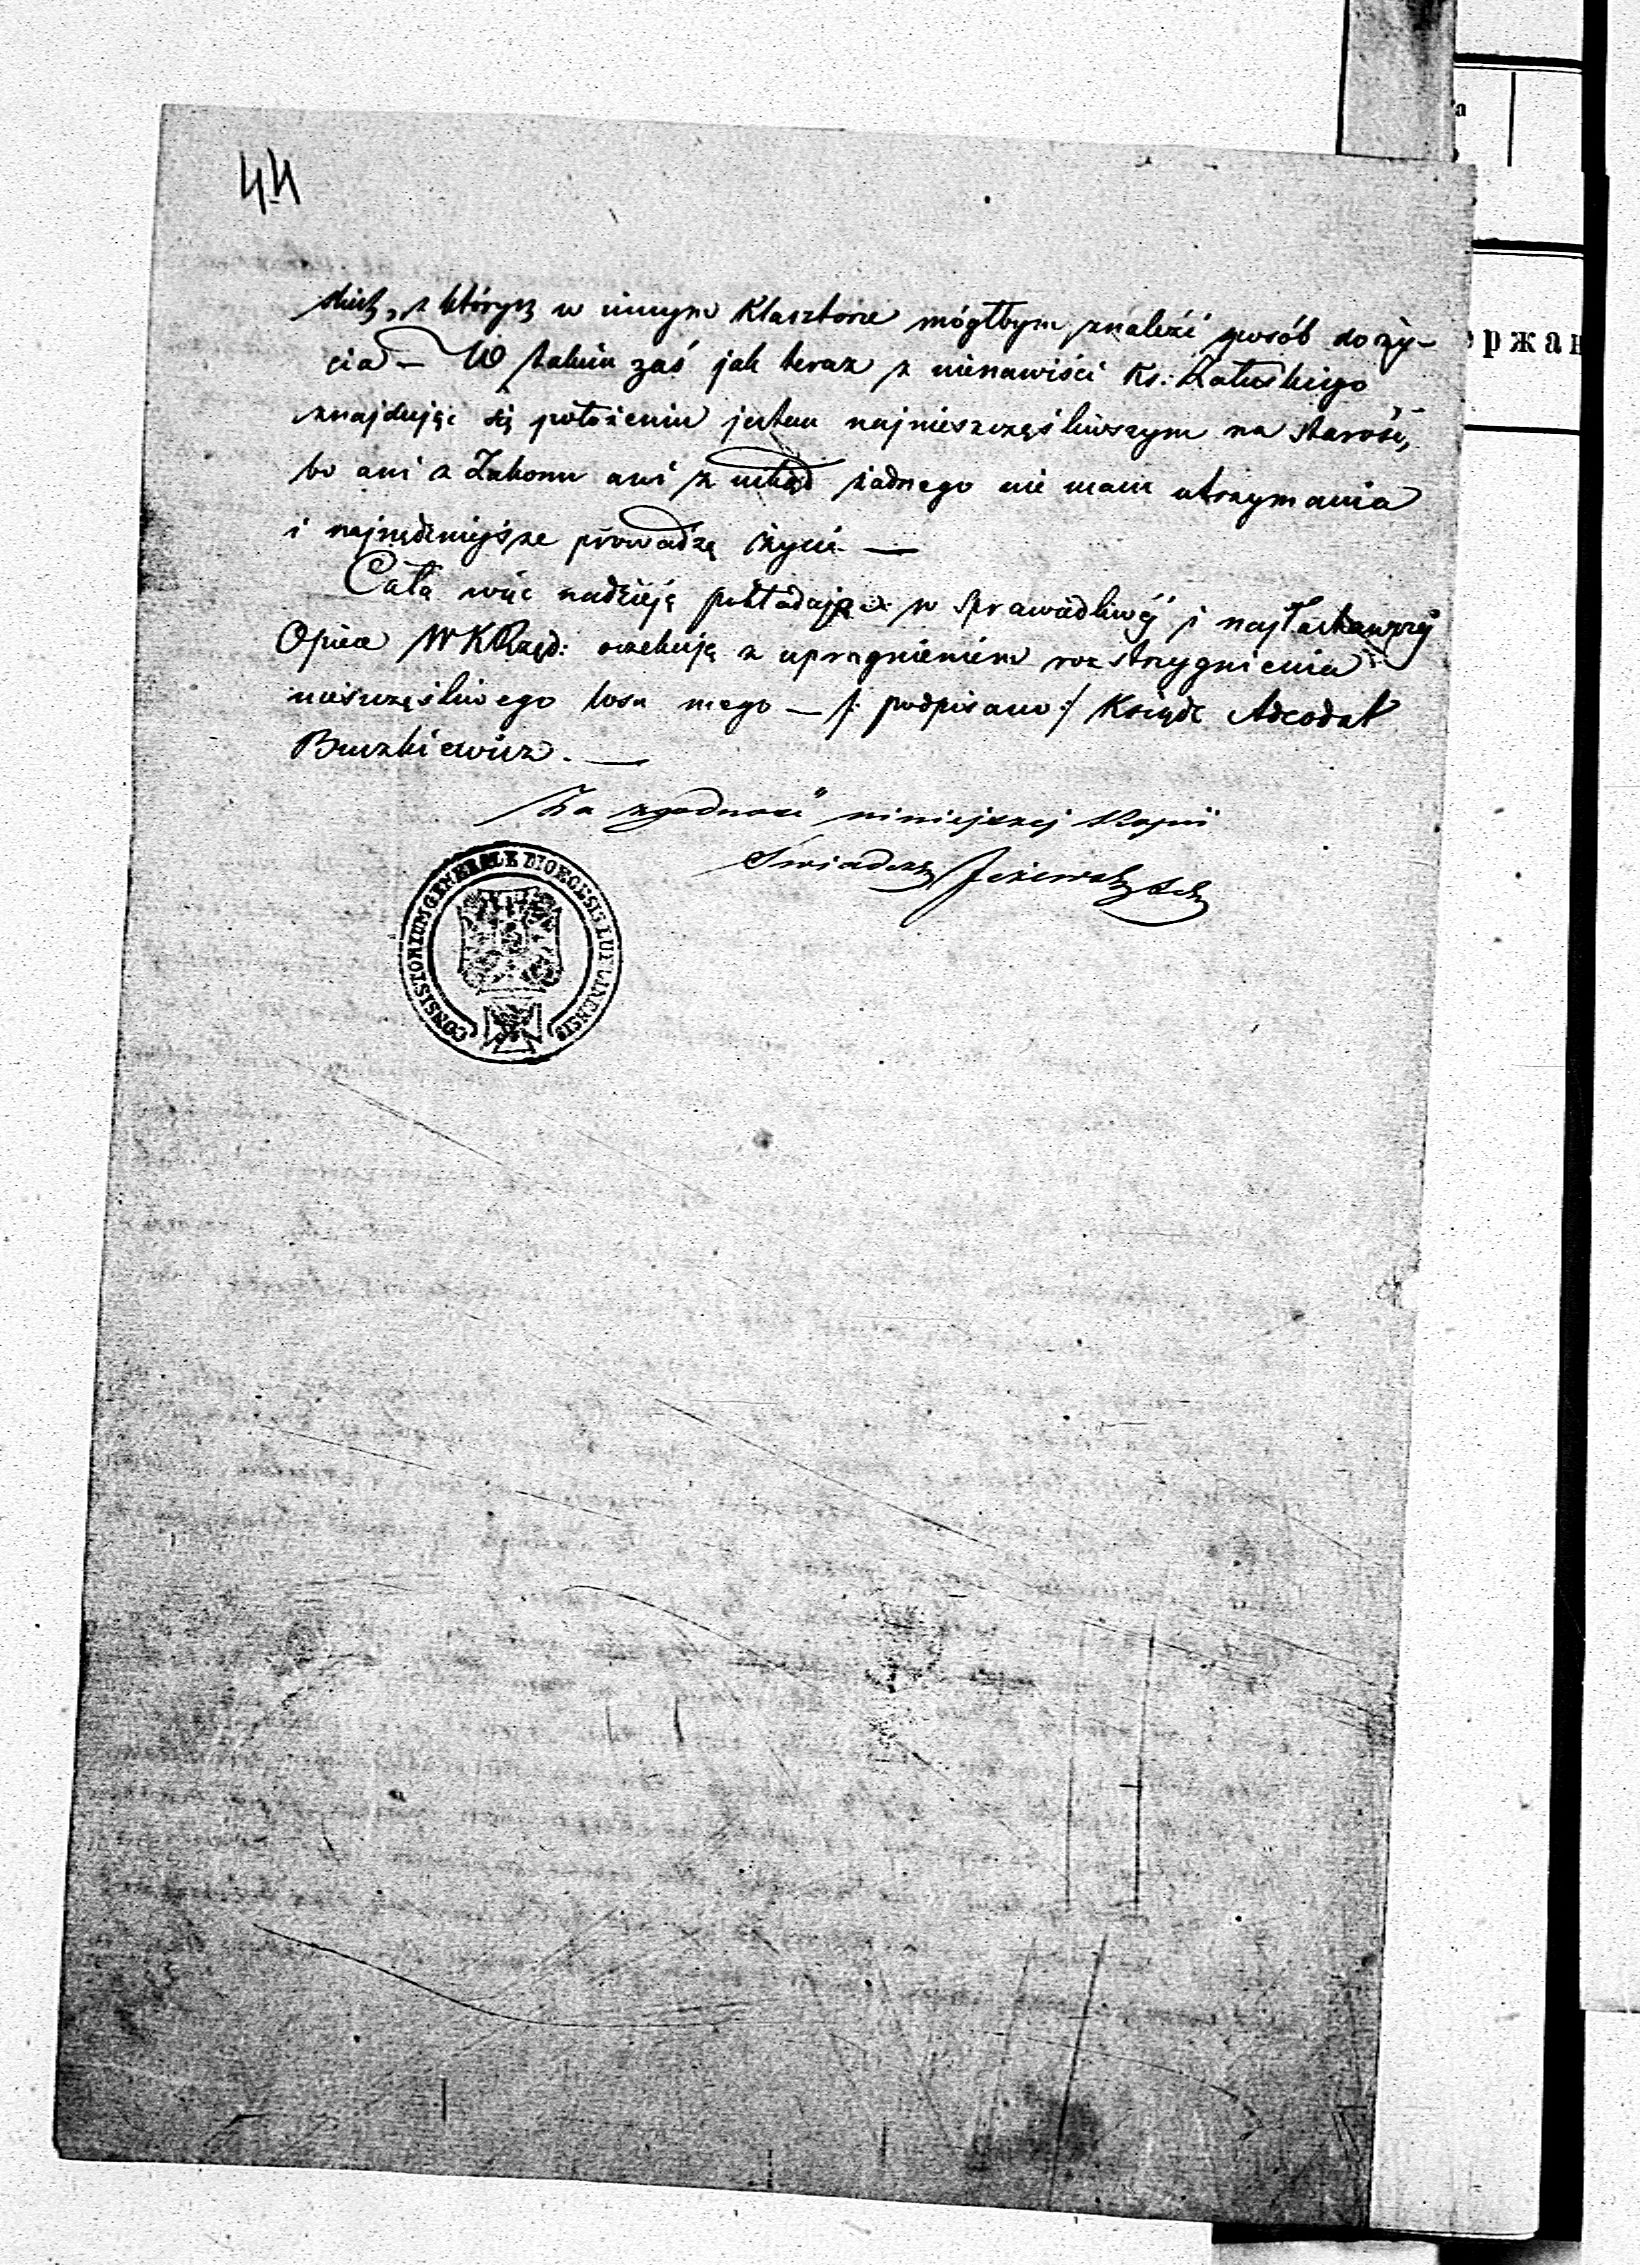 44
skich, z których w innym Klasztorze mógłbym znaleźć sposób do ży-
cia — W takim zaś jak teraz z nienawiści Ks: Załuskiego
znajduję się położeniu jestem najnieszczęśliwszym na starość,
bo ani z Zakonu ani z nikąd żadnego nie mam utrzymania
i najnędzniejsze prowadzę życie. —
Całą więc nadzieję pokładając w sprawiedliwéj i najłaskawszéj
Opiece WKRząd: oczekuję z upragnieniem rozstrzygnienia
nieszczęśliwego losu mego — /: podpisano :/ Ksiądz Adeodat
Buczkiewicz. —
Za zgodność niniejszej Kopii
Świadczy
CONSISTORIUM GENERALE DIOECESIS LUBLINENSIS
ржан